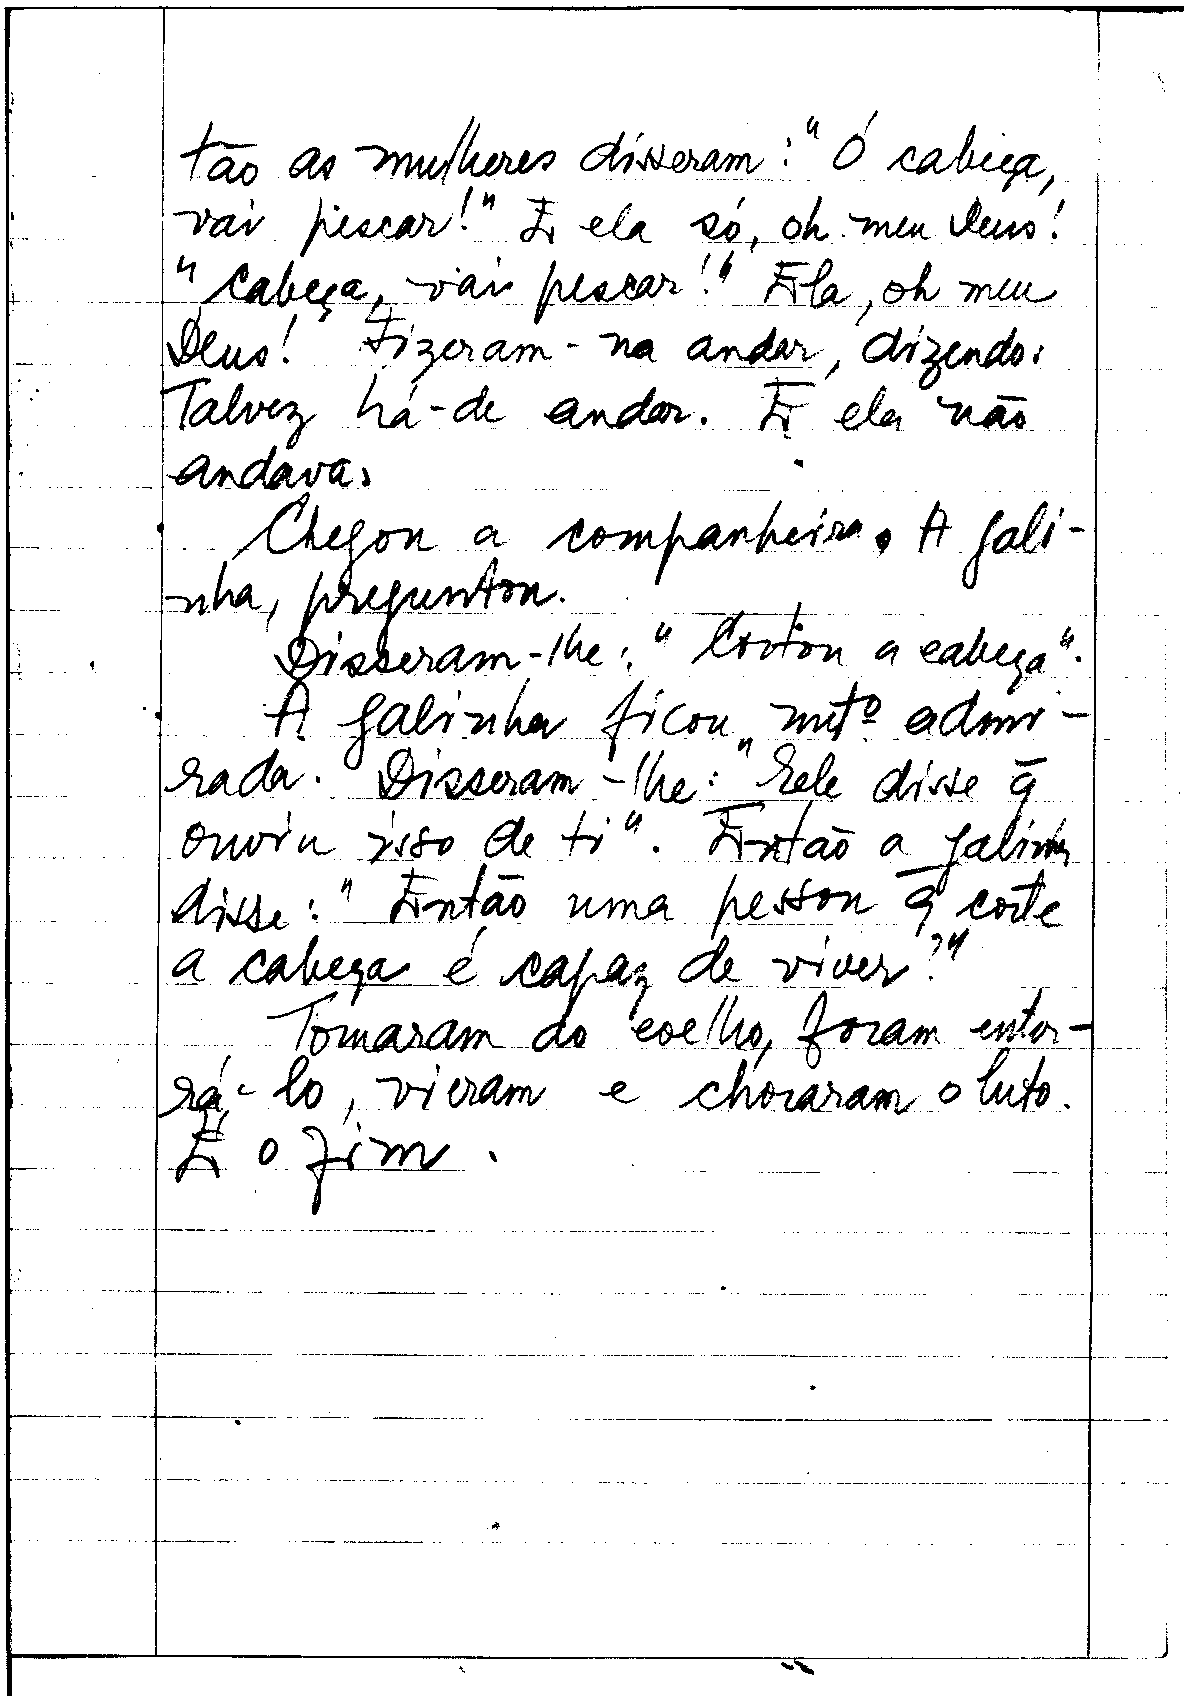 tão as mulheres disseram: "Ó cabeça,
vai pescar!" E ela só, oh meu Deus!
"Cabeça, vai pescar!" Ela, oh meu
Deus! Fizeram-na andar, dizendo:
Talvez há-de andar. E ela não
andava.
Chegou a companheira. A gali-
nha, preguntou.
Disseram-lhe: "Cortou a cabeça".
A galinha ficou mtº admi-
rada. Disseram-lhe: "Ele disse q̄
ouviu isso de ti". Então a galinha
disse: "Então uma pessoa q̄ corte
a cabeça é capaz de viver?"
Tomaram do coelho, foram enter-
rá-lo, vieram e choraram o luto.
É o fim.